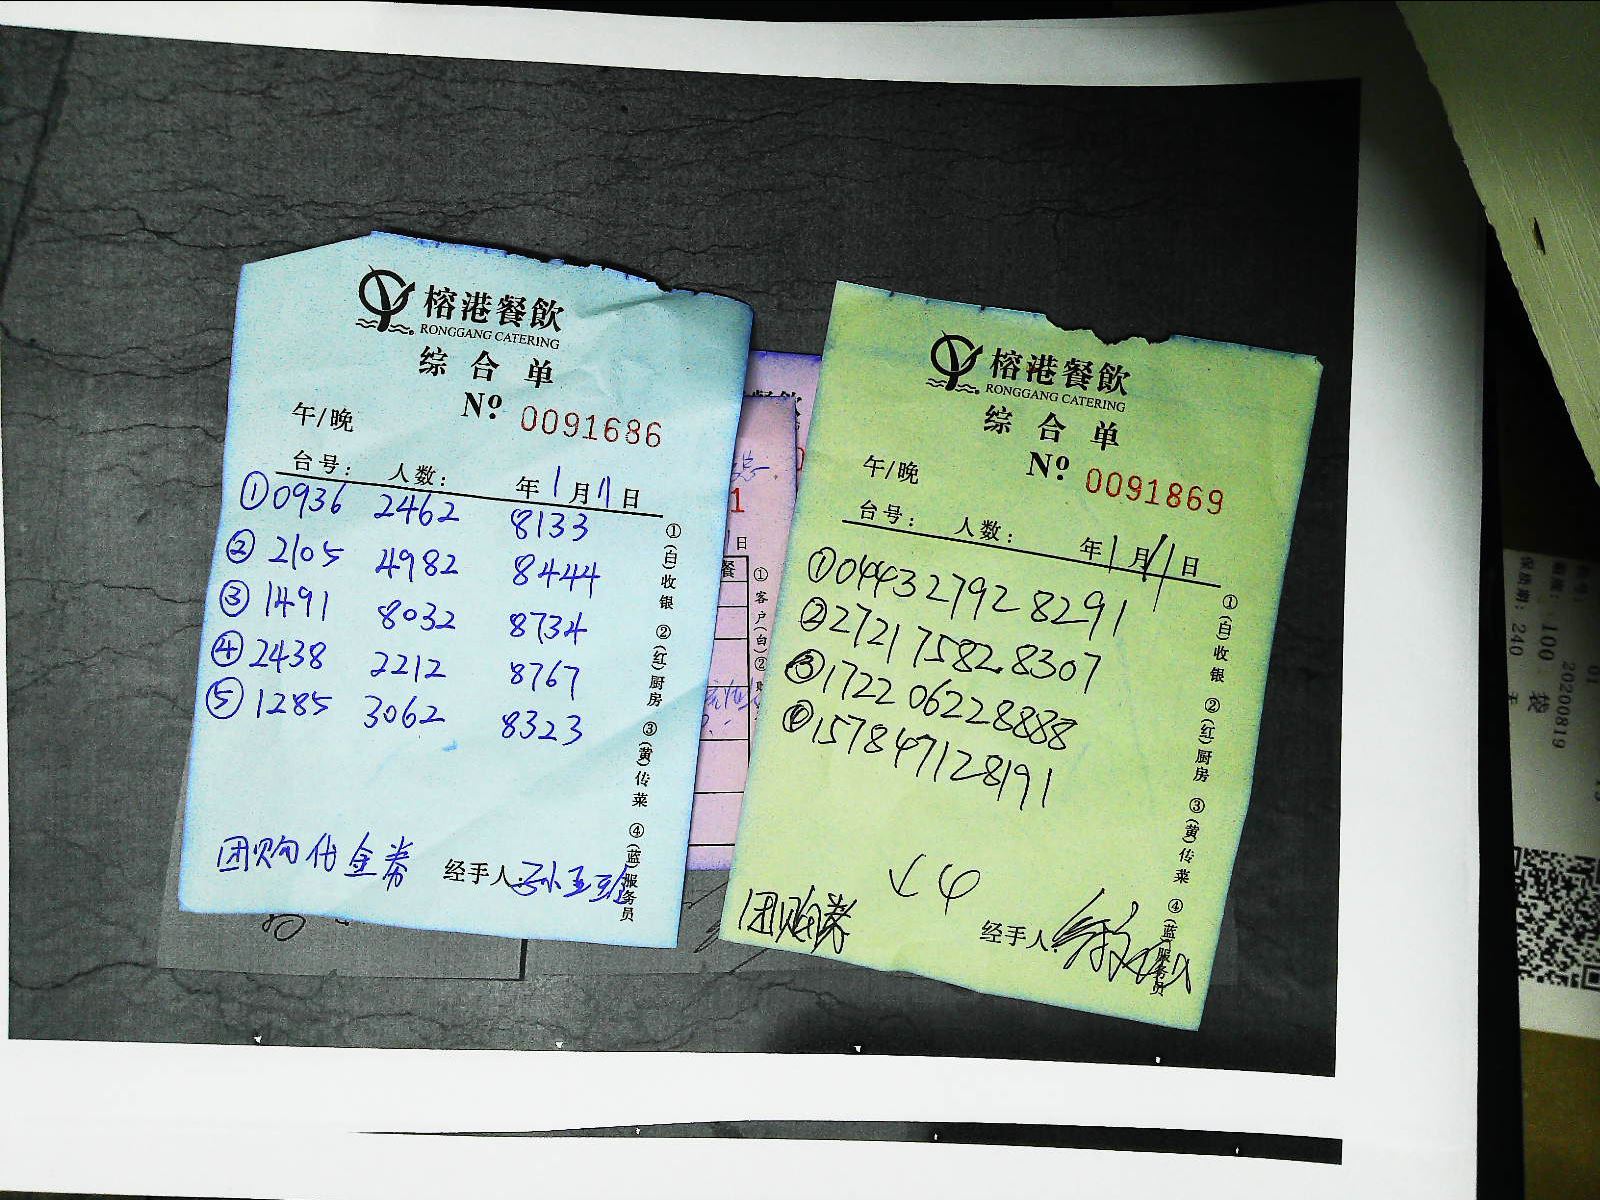 榕港餐飲
RONGGANG CATERING
综合单
Nº 0091686
午/晚
台号： 人数： 年1月11日
①0936 2462 8133
②2105 4982 8444
③1491 8032 8734
④2438 2212 8767
⑤1285 3062 8323
团购代金券
经手人：
①(白)收银 ②(红)厨房 ③(黄)传菜 ④(蓝)服务员
1
日
餐
①客户(白)②
榕港餐飲
RONGGANG CATERING
综合单
Nº 0091869
午/晚
台号： 人数： 年1月11日
①0443 2792 8291
②2721 7582 8307
③1722 0622 8888
④1578 4712 8191
团购券
经手人：
①(白)收银 ②(红)厨房 ③(黄)传菜 ④(蓝)服务员
20200819
100 袋
保质期：240 天